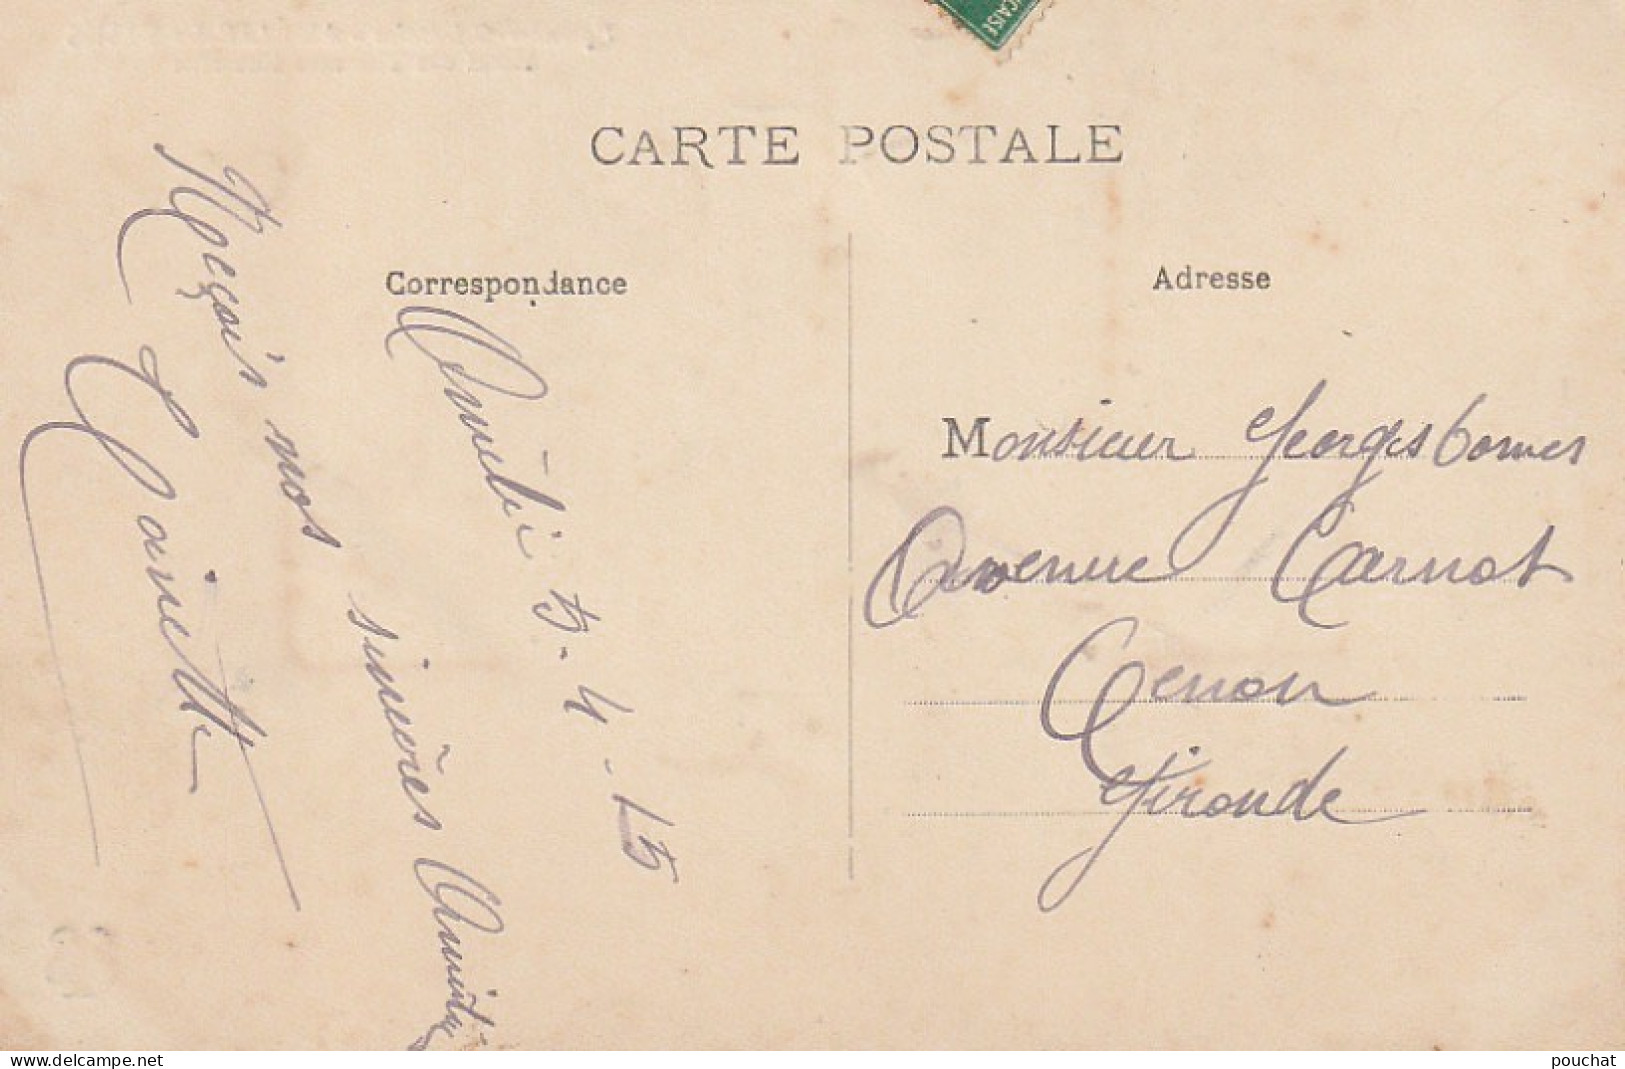 ÇAISE
CARTE POSTALE
Correspondance
Adresse
5-4-15
Reçois nos sincères Amitiés
Monsieur Georges
Avenue Carnot
Cenon
Gironde
www.delcampe.net
pouchat